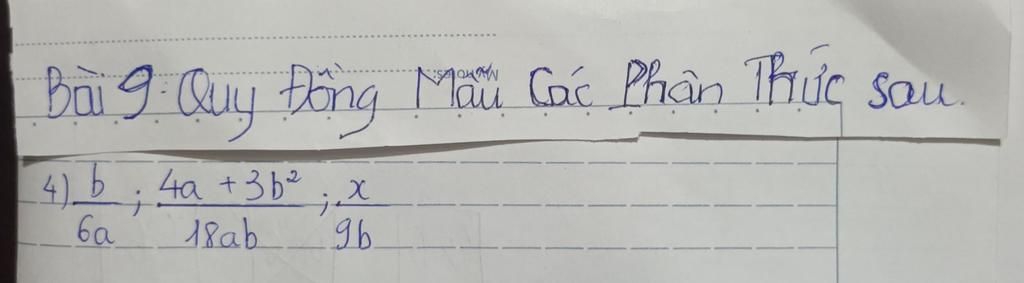 Bài 9: Quy Đồng Mẫu Các Phân Thức sau.
4) b/6a ; 4a + 3b²/18ab ; x/9b